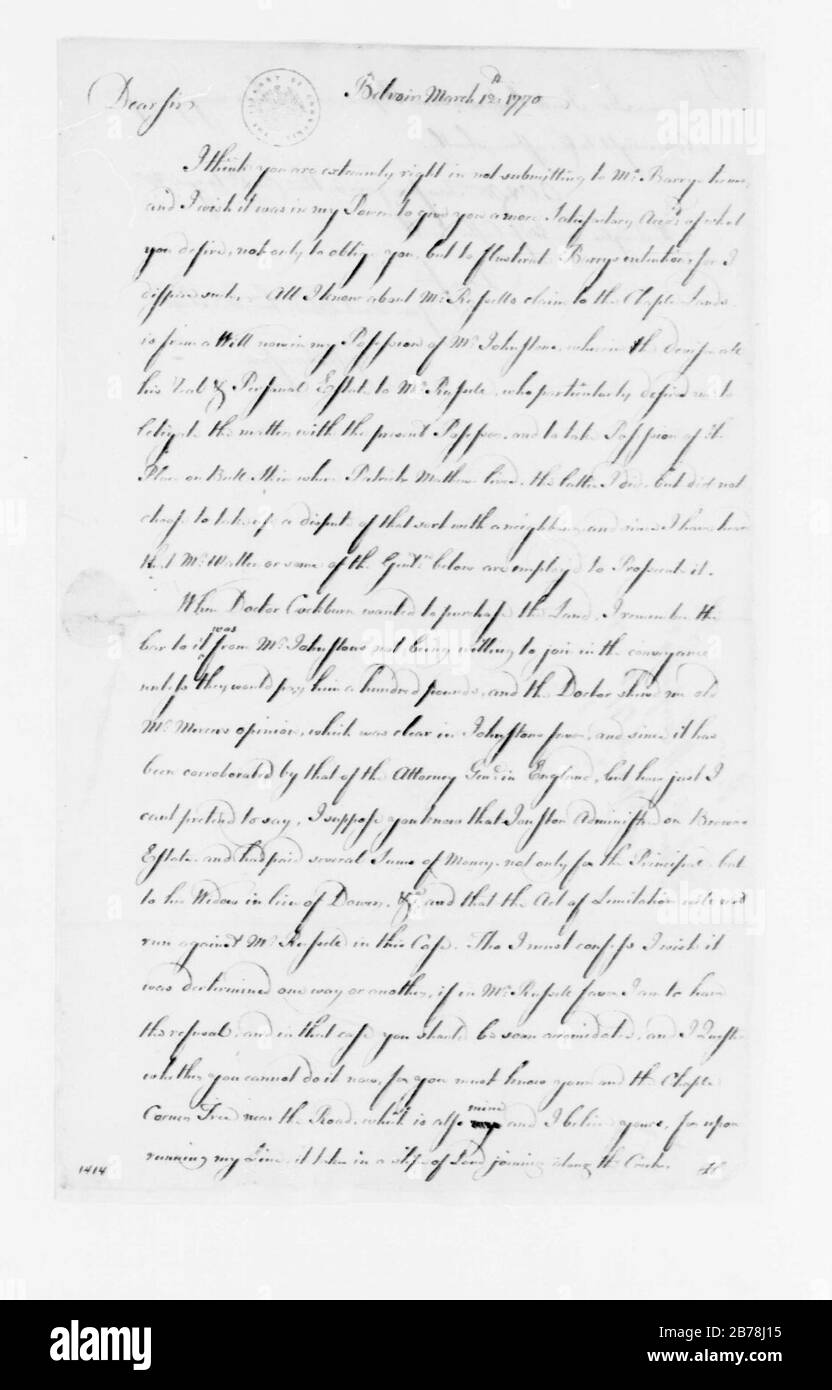 Belvoir March 12th 1770
Dear Sir
I think you are extremely right in not submitting to Mr Barrys terms,
and I wish it was in my Power to give you a more Satisfactory Acct of what
you desire, not only to oblige you, but to frustrate Barrys intentions for I
dispise such. All I know about Mr Russells claim to the Chaple Lands
is from a Will now in my Possession of Mr Johnstons, wherein he devises all
his real & Personal Estate to Mr Russell, who particularly desired me to
letigate the matter with the present Possessor, and to take Possession of the
Place on Bull Skin where Patrick Mathews lived, the latter I did, but did not
choose to take up a dispute of that sort with a neighbour, and since I have heard
that Mr Waller or some of the Gentn below are employd to Prosecute it.
When Doctor Cockburn wanted to purchase the Land, I remember the
bar to it was from Mr Johnstons not being willing to join in the conveyance
unless they would pay him a hundred pounds, and the Doctor shewd me old
Mr Mercers opinion, which was clear in Johnstons favor, and since it has
been corroborated by that of the Attorney Genl in England, but how just I
cant pretend to say, I suppose you know that Jonston Administred on Browns
Estate and had paid several Sums of Money not only for the Principal but
to his Widow in lieu of Dower, &ca and that the Act of Limitation will not
run against Mr Russell in this Case. Tho I must confess I wish it
was determined one way or another, if in Mr Russells favor I am to have
the refusal, and in that case you should be soon accomidated, and I Questn
whether you cannot do it now, for you must know yours and the Chaple
Corner Tree near the Road, which is also mine and I believe yours, for upon
running my Line, it taken in a slipe of Land joining along the Creek.
1414
LIBRARY OF CONGRESS
alamy
www.alamy.com
Image ID: 2B78J15